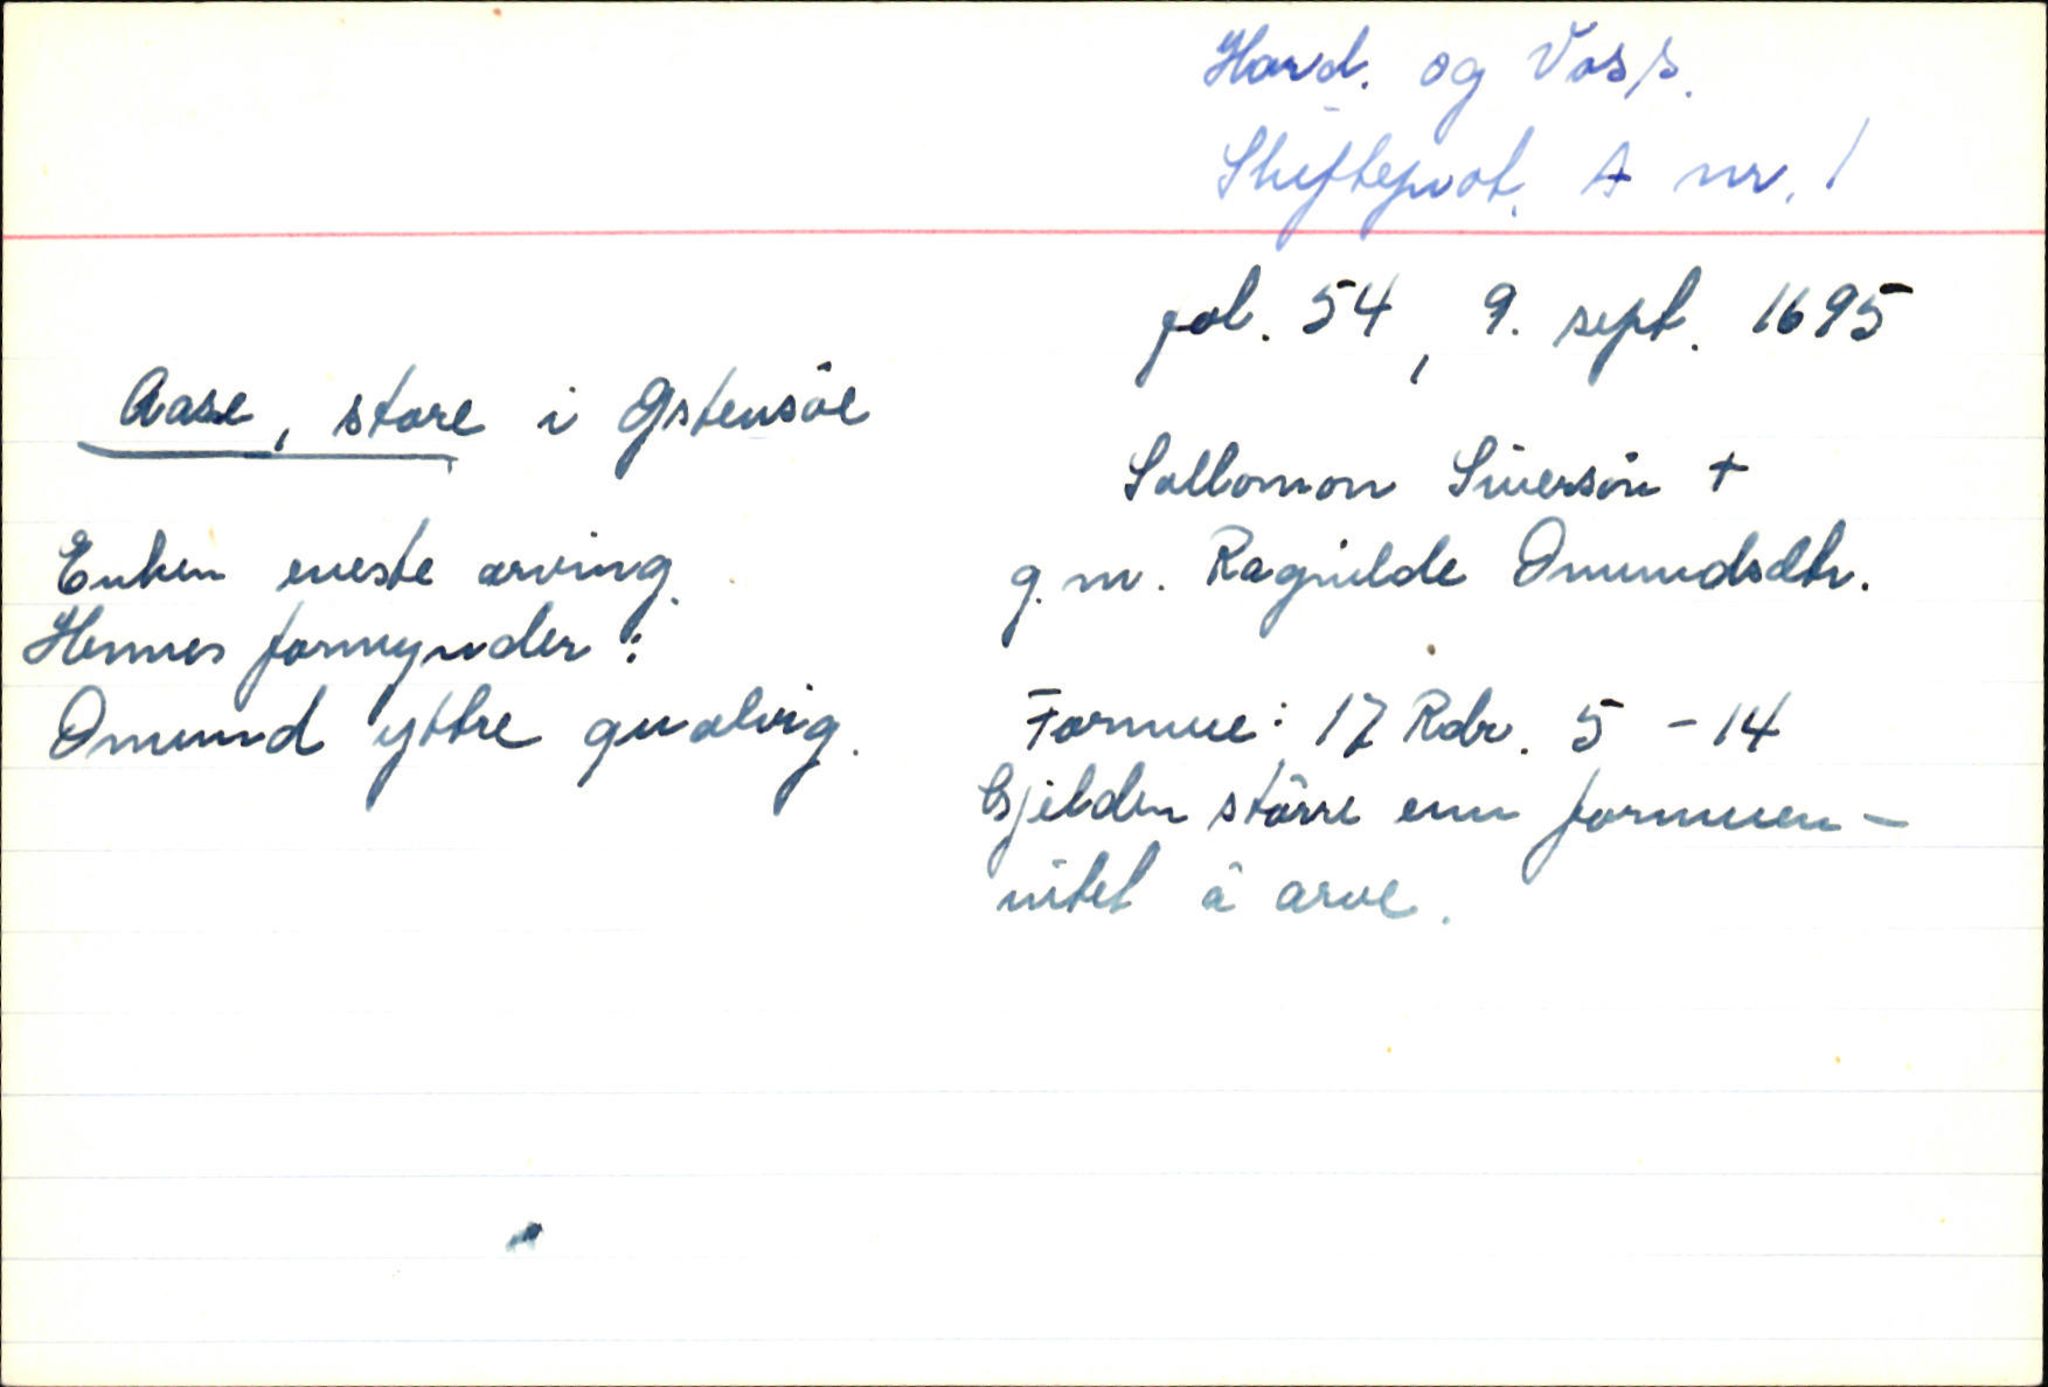 Hard. og Voss.
Skifteprot. A nr. 1
fol. 54, 9. sept. 1695
Aase, store i Østensöe
Sallomon Siversön +
g. m. Ragnilde Omundsdtr.
Enken eneste arving.
Hennes formynder:
Omund yttre qualvig.
Formue: 17 Rdr. 5 - 14
Gjelden större enn formuen -
intet å arve.